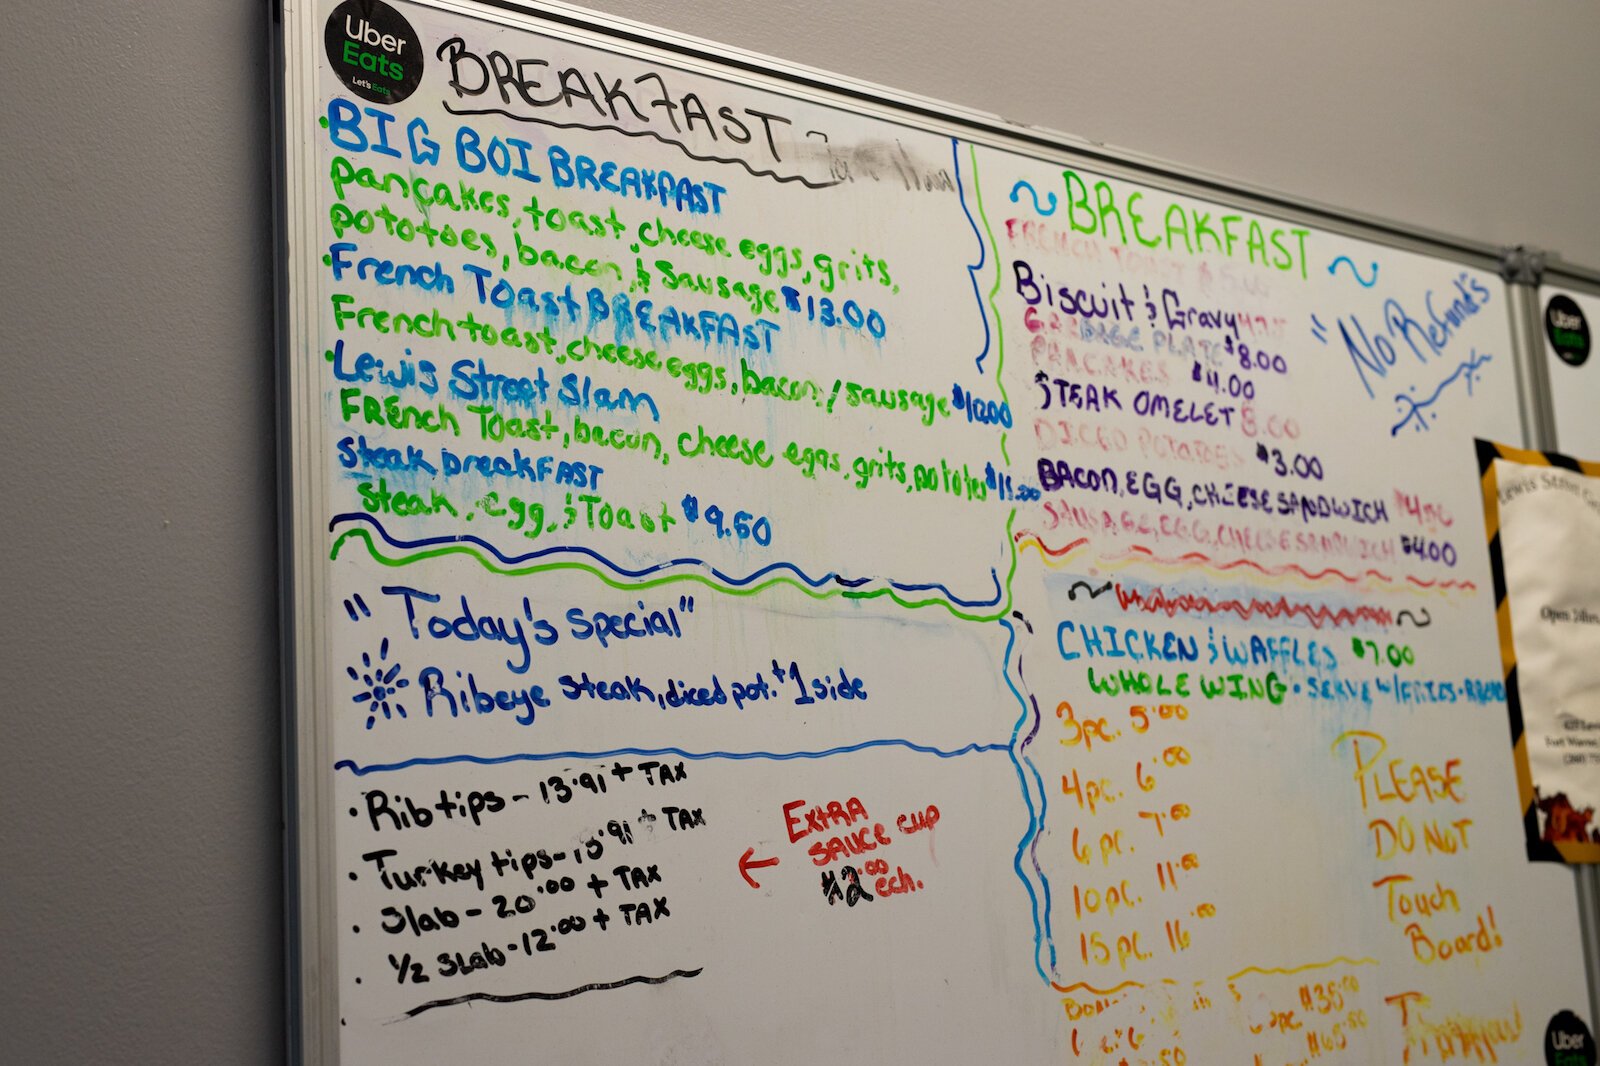 Uber
Eats
Let's Eats
BREAKFAST
BIG BOI BREAKFAST
pancakes, toast, cheese eggs, grits,
pototoes, bacon, & Sausage $13.00
French Toast BREAKFAST
French toast, cheese eggs, bacon / sausage $10.00
Lewis Street Slam
FRENCH Toast, bacon, cheese eggs, grits, pototoes
Steak breakFAST
Steak, egg, & Toast $9.50
"Today's special"
Ribeye steak, diced pot. + 1 side
• Rib tips - 13.91 + TAX
• Turkey tips - 13.91 + TAX
• Slab - 20.00 + TAX
• 1/2 SLab - 12.00 + TAX
← EXtRA
SAUCE cup
$2.00
ech.
~ BREAKFAST ~
FRENCH TOAST
Biscuit & Gravy
GARBAGE PLATE $8.00
PANCAKES $4.00
STEAK OMELET 8.00
DICED POTATOES $3.00
BACON, EGG, CHEESE SANDWICH
SAUSAGE, EGG, CHEESE SANDWICH $4.00
"No Refund's
CHICKEN & WAFFLES $7.00
WHOLE WING • SERVE W/FRIES •
3pc. 5.00
4pc. 6.00
6pc. 7.00
10pc. 11.00
15pc. 16.00
PLEASE
DO NOT
Touch
Board!
Uber
Uber
Eats